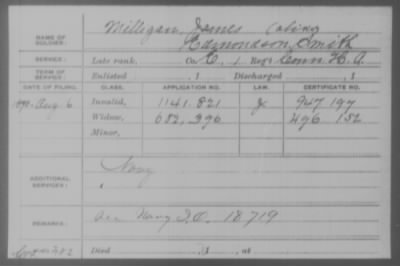 NAME OF SOLDIER: Milligan, James (alias)
Edmondson, Smith
SERVICE: Late rank, Co. C, 1 Reg't Conn. H. A.
TERM OF SERVICE: Enlisted , 1 Discharged , 1
DATE OF FILING. CLASS. APPLICATION NO. LAW. CERTIFICATE NO.
Aug 6 Invalid, 1141.821 947 197
Widow, 682,396 496 152
Minor,
ADDITIONAL SERVICES: Navy
REMARKS: See Navy I.O. 18719
Died , 1 , at